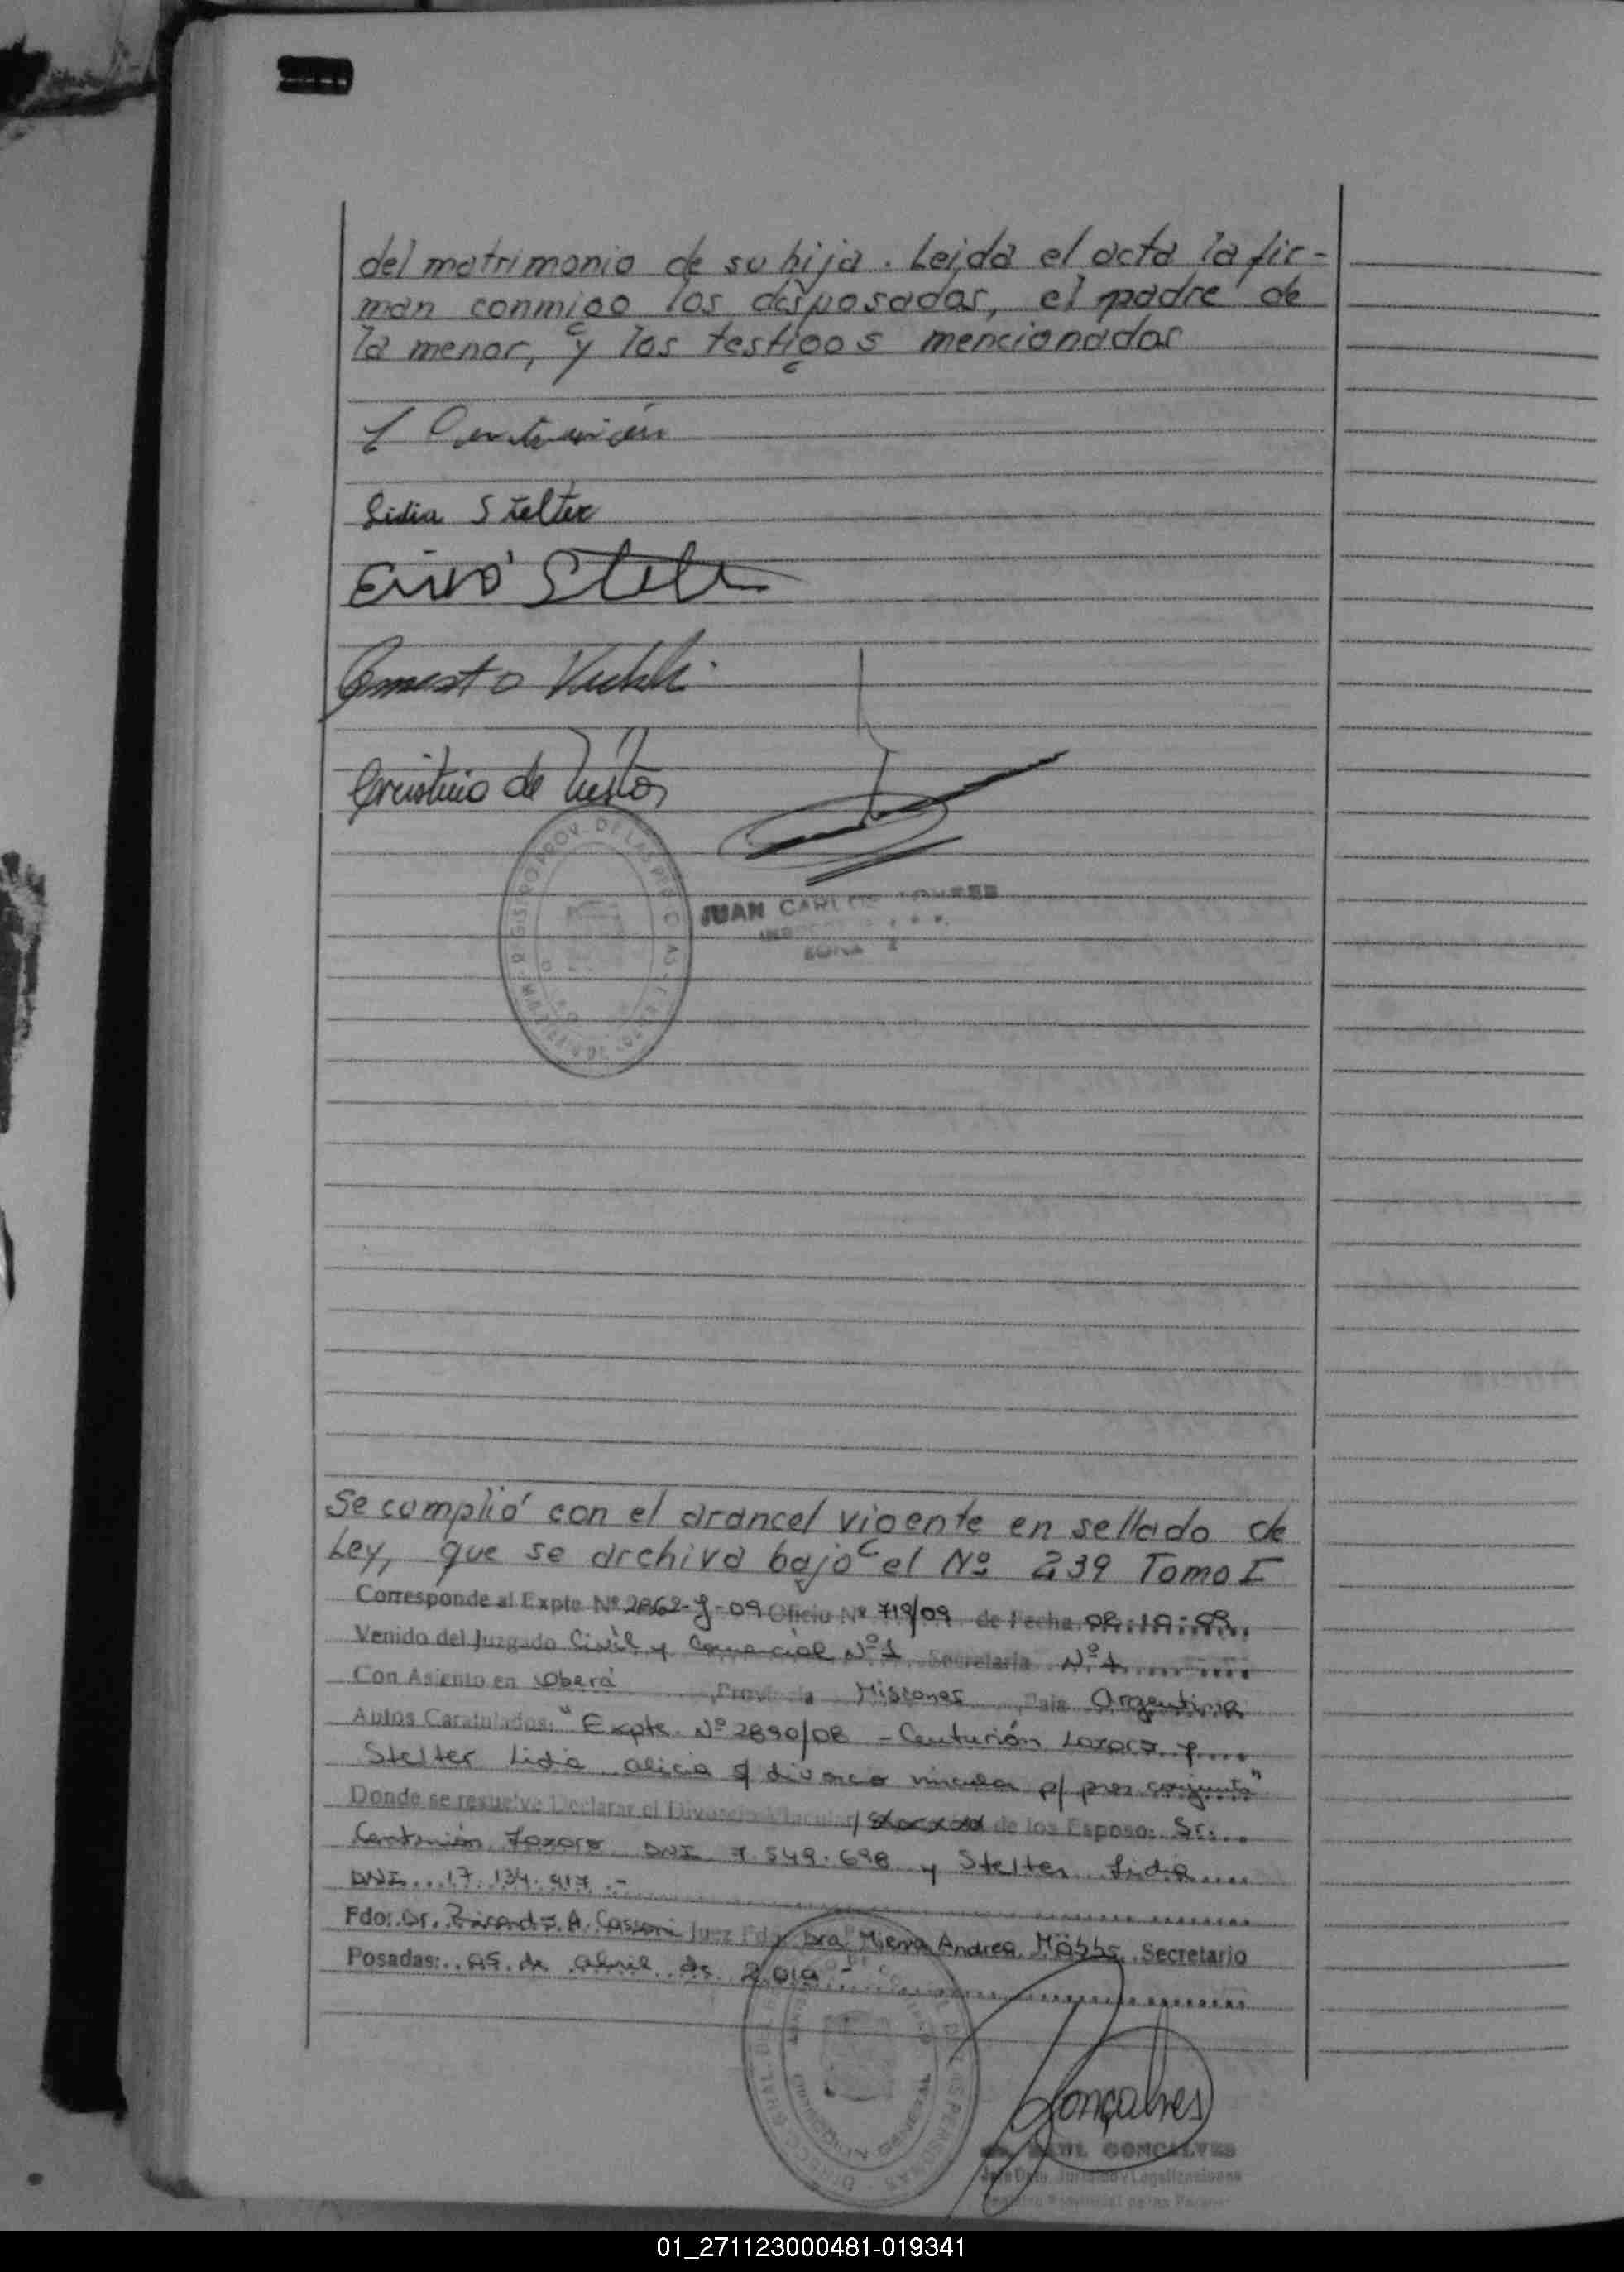 del matrimonio de su hija. Leida el acta la fir-
man conmigo los desposados, el padre de
la menor, y los testigos mencionados
Lidia Stelter
Ernesto
de
JUAN CARLOS
ZONA 2
Se complió con el arancel vigente en sellado de
Ley, que se archiva bajo el Nº 239 Tomo I
Corresponde al Expte Nº 2862-J-09 Oficio Nº 719/09 de Fecha 08:10:09
Venido del Juzgado Civil y Comercial Nº 1 Secretaria Nº 1
Con Asiento en Oberá Provincia Misiones Pais Argentina
Autos Caratulados: "Expte. Nº 2890/08 - Centurión Lázaro y
Stelter Lidia Alicia s/ divorcio vincular p/ pres. conjunta"
Donde se resuelve Declarar el Divorcio Vincular/ de los Esposo: Sr.
Centurión Lázaro DNI 7.549.698 y Stelter Lidia
DNI 17.134.917.-
Fdo: Dr. A. Cassoni Juez Fdo. Dra. Andrea Secretario
Posadas: 05 de abril de 2.010 -
Gonçalves
RAUL GONCALVES
Jefe Dpto. Juridico y Legalizaciones
Registro Provincial de las Personas
01_271123000481-019341